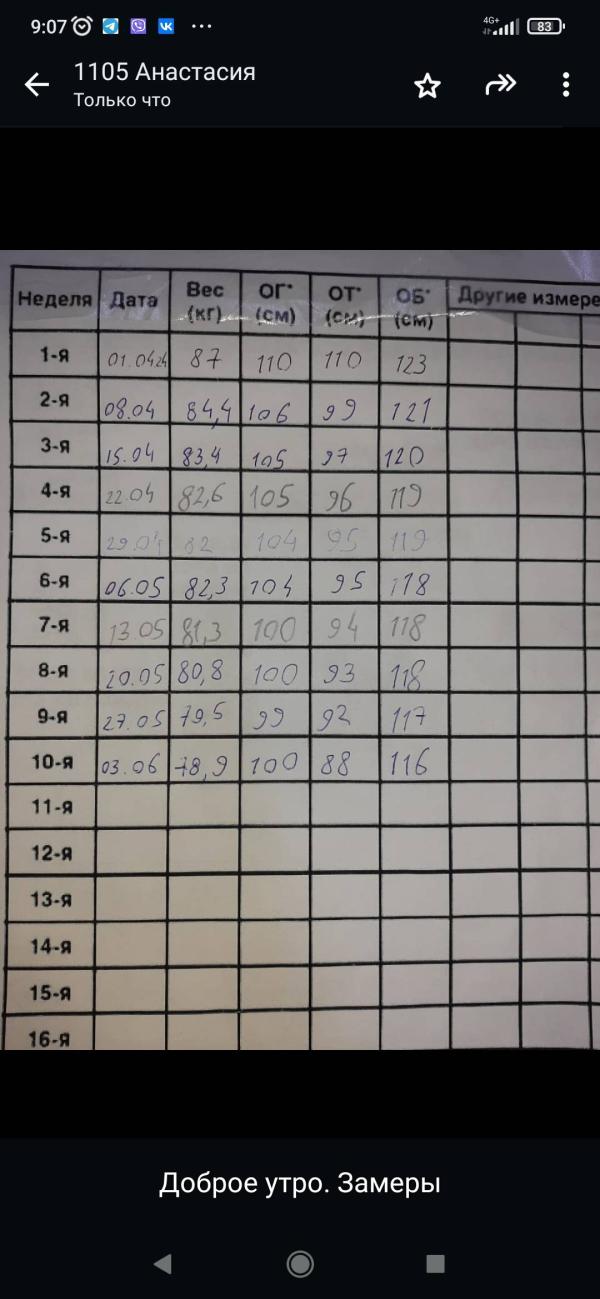 9:07 4G+ 83
1105 Анастасия
Только что
Неделя Дата Вес (кг) ОГ* (см) ОТ* (см) ОБ* (см) Другие измере
1-я 01.04 24 87 110 110 123
2-я 08.04 84,4 106 99 121
3-я 15.04 83,4 105 97 120
4-я 22.04 82,6 105 96 119
5-я 29.04 82 104 95 119
6-я 06.05 82,3 104 95 118
7-я 13.05 81,3 100 94 118
8-я 20.05 80,8 100 93 118
9-я 27.05 79,5 99 92 117
10-я 03.06 78,9 100 88 116
11-я
12-я
13-я
14-я
15-я
16-я
Доброе утро. Замеры